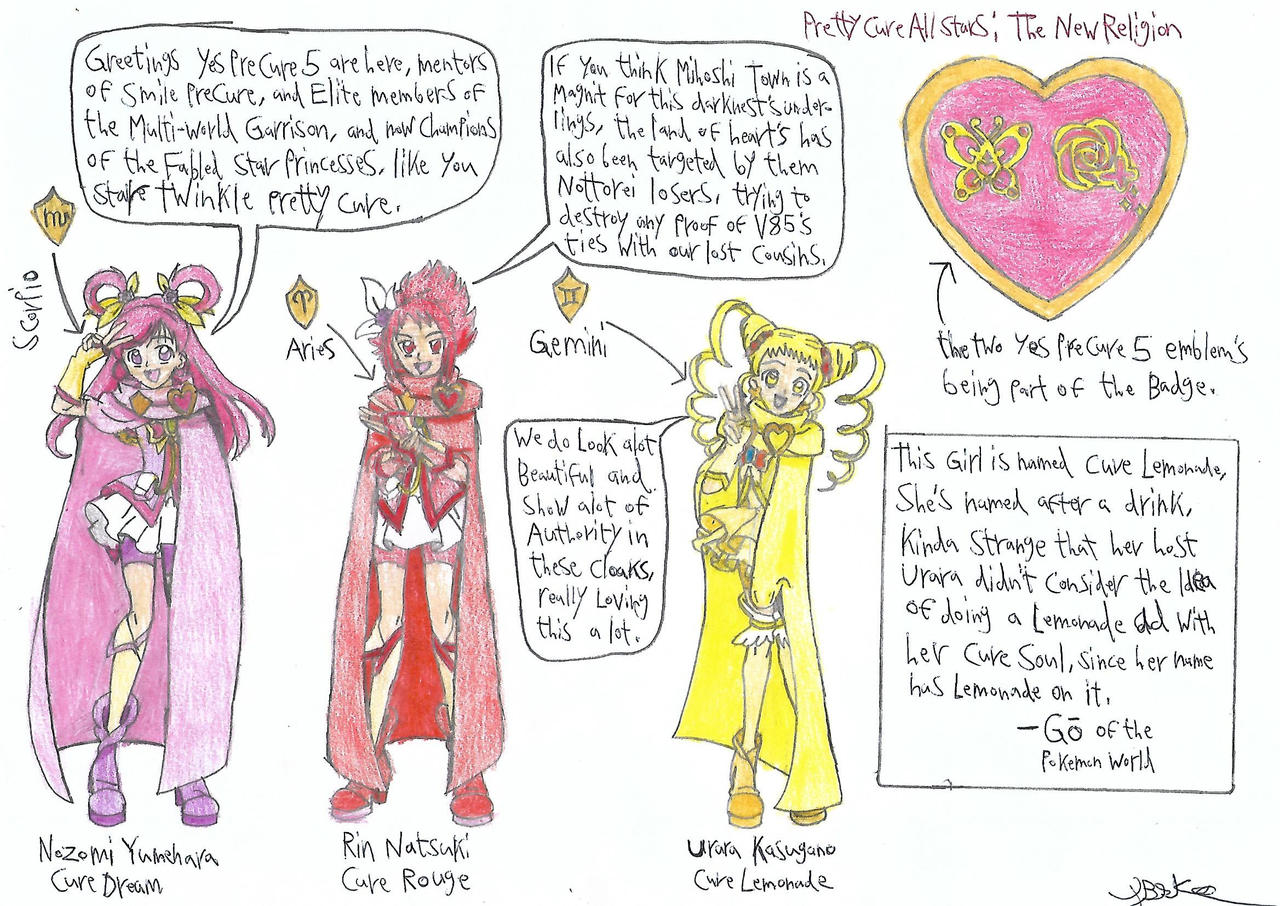 Pretty Cure All Stars; The New Religion
Greetings Yes PreCure 5 are here, mentors
of Smile PreCure, and Elite members of
the Multi-world Garrison, and now Champions
of the Fabled Star Princesses, like you
Stare twinkle pretty cure.
If you think Mihoshi Town is a
Magnit for this darknest's under-
lings, the land of heart's has
also been targeted by them
Nottorei losers, trying to
destroy any proof of V85's
ties with our lost cousins.
Scorpio
Aries
Gemini
the two Yes PreCure 5 emblem's
being part of the Badge.
We do Look alot
Beautiful and
Show alot of
Authority in
these Cloaks,
really Loving
this a lot.
This Girl is named Cure Lemonade,
She's named after a drink,
Kinda Strange that her host
Urara didn't Consider the Idea
of doing a Lemonade ad With
her Cure Soul, since her name
has Lemonade on it.
—Gō of the
Pokemon World
Nozomi Yumehara
Cure Dream
Rin Natsuki
Cure Rouge
Urara Kasugano
Cure Lemonade